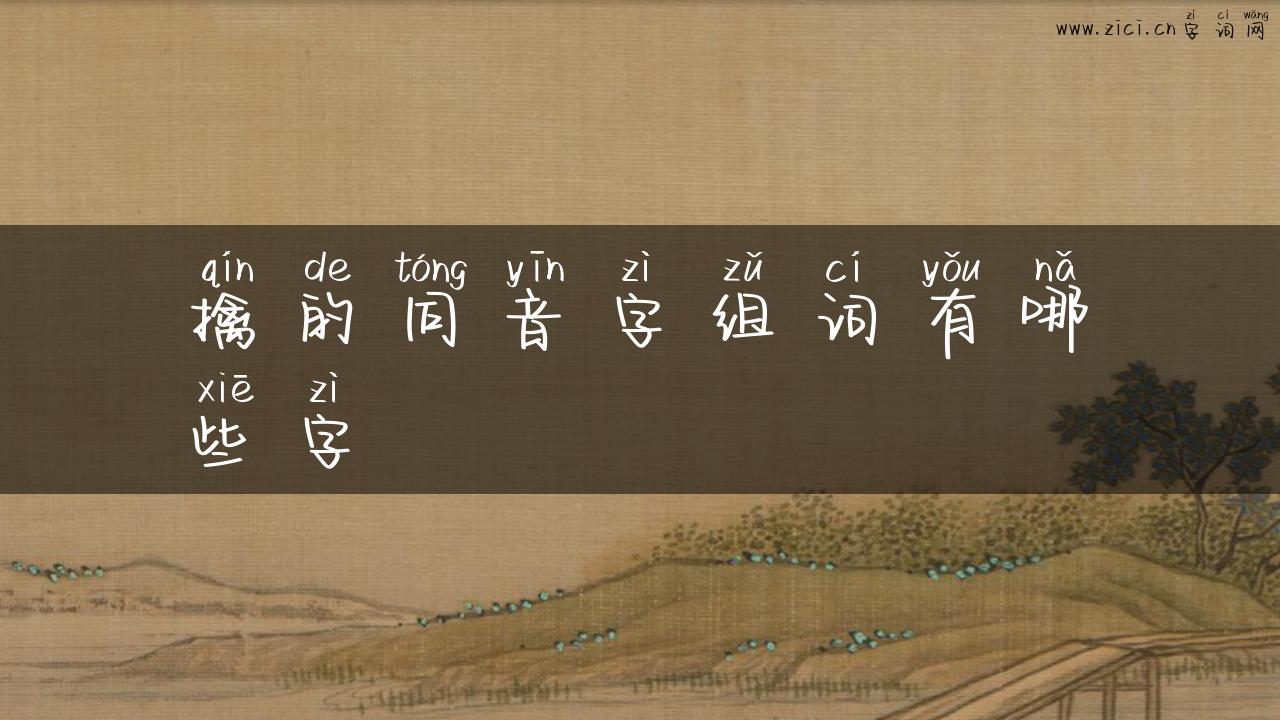 zì cí wǎng
www.zici.cn字词网
qín de tóng yīn zì zǔ cí yǒu nǎ
擒的同音字组词有哪
xiē zì
些字